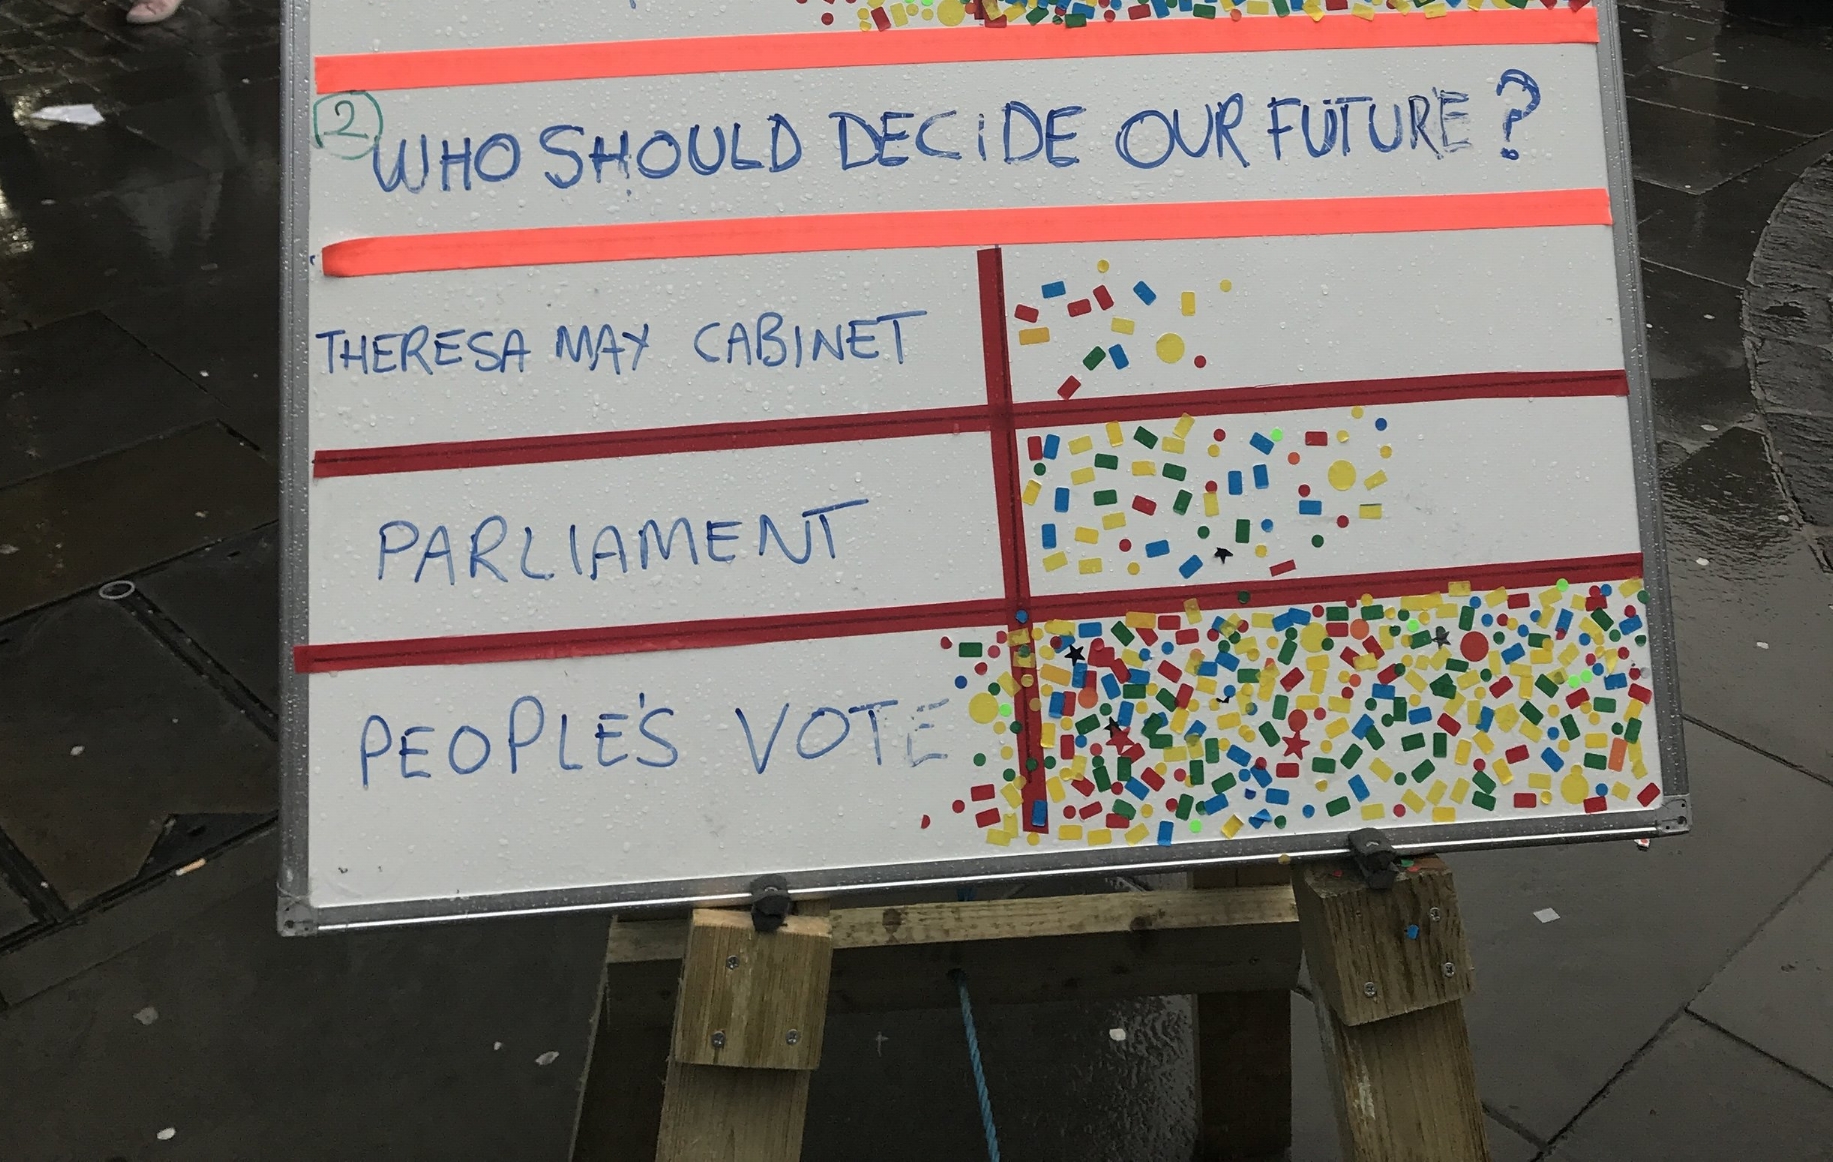 2 WHO SHOULD DECIDE OUR FUTURE ?
THERESA MAY CABINET
PARLIAMENT
PEOPLE'S VOTE